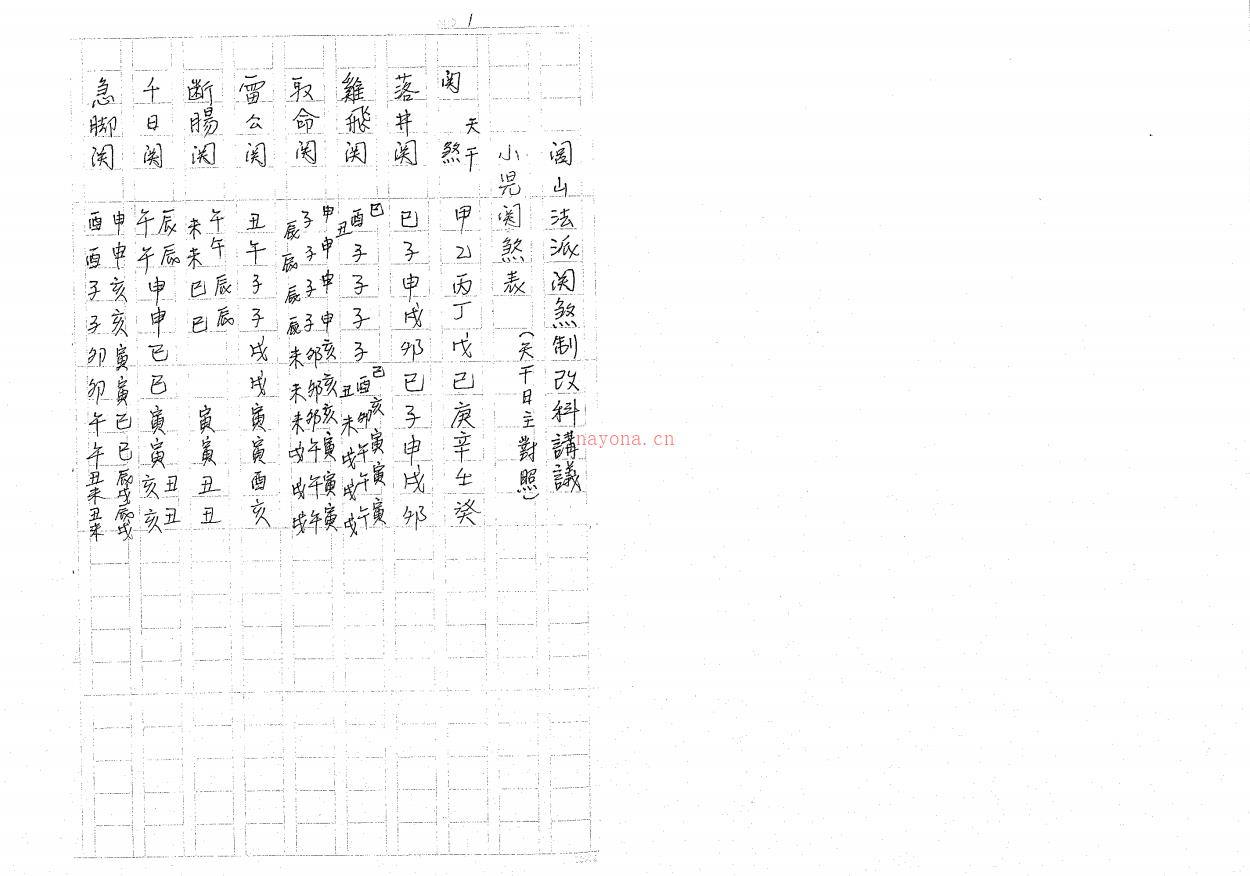 1
閭山法派関煞制改科講議
小児関煞表 (天干日主對照)
関煞 天干 甲乙丙丁戊己庚辛壬癸
落井関 巳子申戌卯巳子申戌卯
雞飛関 巳酉丑 子 子 子 子 巳酉丑 亥卯未 寅午戌 寅午戌 寅午戌
取命関 申子辰 申子辰 申子辰 申子辰 亥卯未 亥卯未 亥卯未 寅午戌 寅午戌 寅午戌
雷公関 丑午子子戌戌寅寅酉亥
断腸関 午未 午未 辰巳 辰巳 寅 寅 丑 丑
千日関 辰午 辰午 申 申 巳 巳 寅 寅 丑亥 丑亥
急脚関 申酉 申酉 亥子 亥子 寅卯 寅卯 巳午 巳午 辰戌丑未 辰戌丑未
nayona.cn